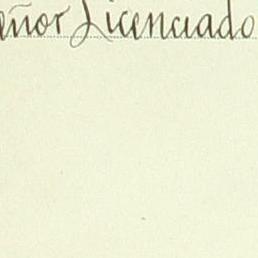 eñor Licenciado